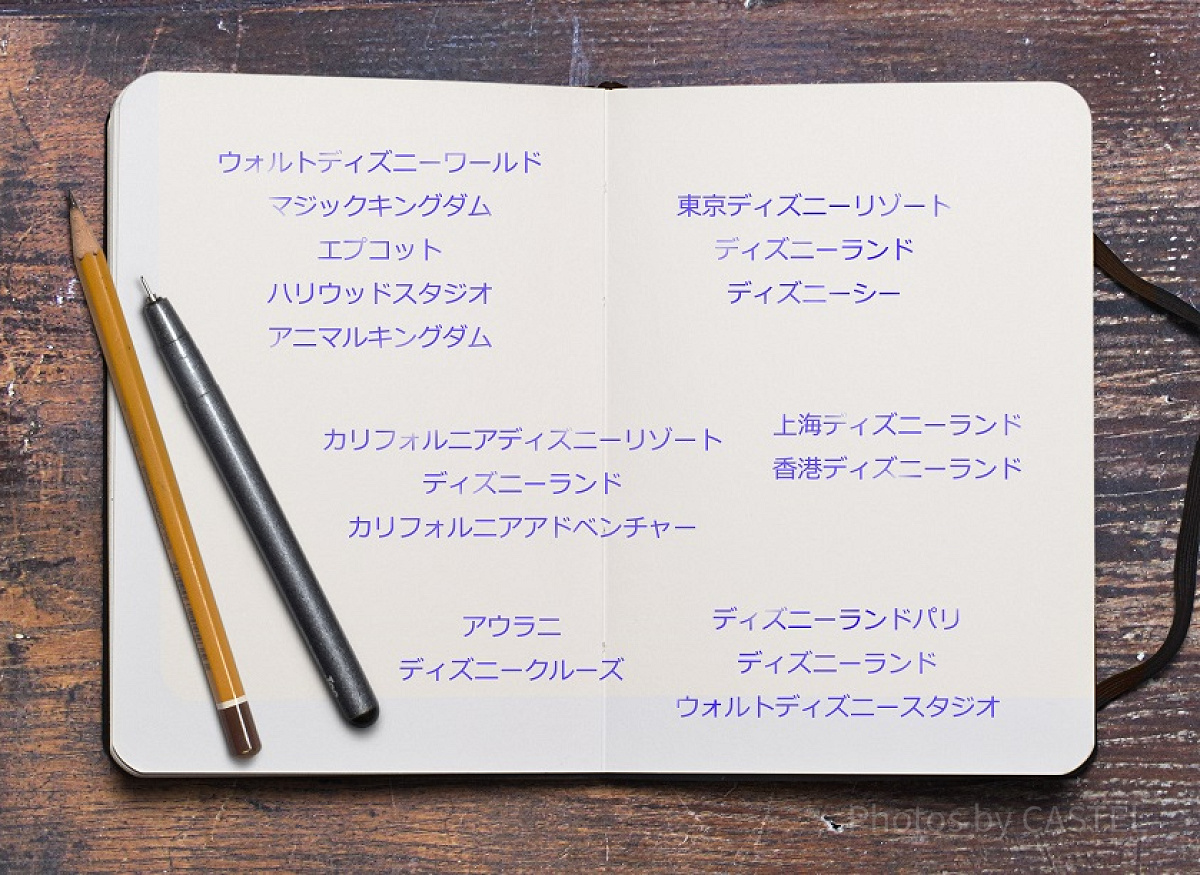 ウォルトディズニーワールド
マジックキングダム
エプコット
ハリウッドスタジオ
アニマルキングダム
東京ディズニーリゾート
ディズニーランド
ディズニーシー
カリフォルニアディズニーリゾート
ディズニーランド
カリフォルニアアドベンチャー
上海ディズニーランド
香港ディズニーランド
アウラニ
ディズニークルーズ
ディズニーランドパリ
ディズニーランド
ウォルトディズニースタジオ
Photos by CASTEL